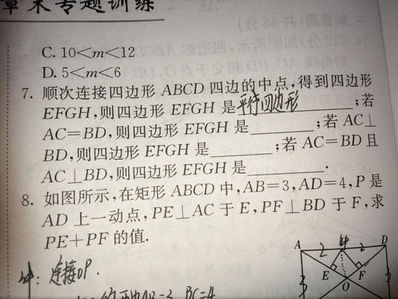 章末专题训练
C. 10<m<12
D. 5<m<6
7. 顺次连接四边形 ABCD 四边的中点,得到四边形
EFGH,则四边形 EFGH 是平行四边形;若
AC=BD,则四边形 EFGH 是________;若 AC⊥
BD,则四边形 EFGH 是________;若 AC=BD 且
AC⊥BD,则四边形 EFGH 是________.
8. 如图所示,在矩形 ABCD 中,AB=3,AD=4,P 是
AD 上一动点,PE⊥AC 于 E,PF⊥BD 于 F,求
PE+PF 的值.
A 2 D
连接OP.
E F
O
AB=3 BC=4